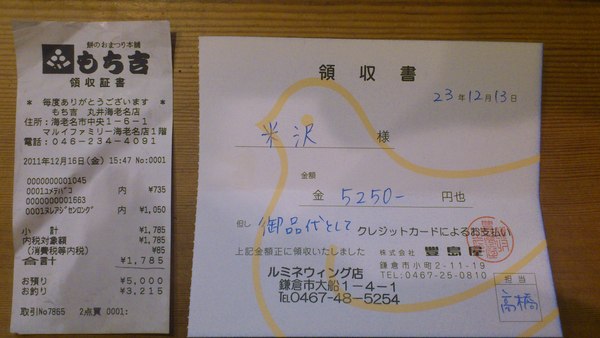 餅のおまつり本舗
もち吉
領収証書
* 毎度ありがとうございます *
もち吉 丸井海老名店
住所：海老名市中央1-6-1
マルイファミリー海老名店1階
電話：046-234-4091
2011年12月16日(金) 15:47 No:0001
0000000001045
0001ユメテバコ 内 ¥735
0000000001663
0001ヌレアジセンロング 内 ¥1,050
小 計 ¥1,785
内税対象額 ¥1,785
(消費税等内税) ¥85
合言計 ¥1,785
お預り ¥5,000
お釣り ¥3,215
取引No7865 2点買 0001:
領収書
23年12月13日
米沢 様
金額
金 5250- 円也
但し 御品代として クレジットカードによるお支払い
上記金額正に領収いたしました
株式会社 豊島屋
鎌倉市小町2-11-19
TEL:0467-25-0810
ルミネウィング店
鎌倉市大船1-4-1
TEL0467-48-5254
担当
高橋